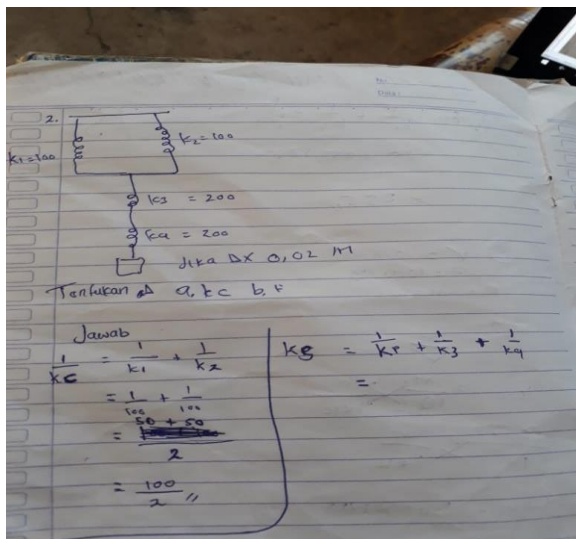 No:
Date:
2.
K1=100
K2=100
K3 = 200
K4 = 200
Jika Δx 0,02 M
Tentukan a, kc b, F
Jawab
1/Kc = 1/K1 + 1/K2
= 1/100 + 1/100
= 50 + 50 / 2
= 100/2 //
Ks = 1/Kp + 1/K3 + 1/K4
=